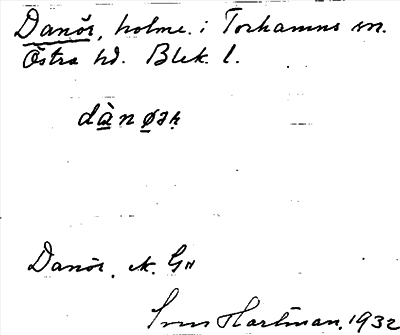 Danör, holme i Torhamns sn.
Östra hd. Blek. l.
Danör, ek. G
Sven Hartman, 1932